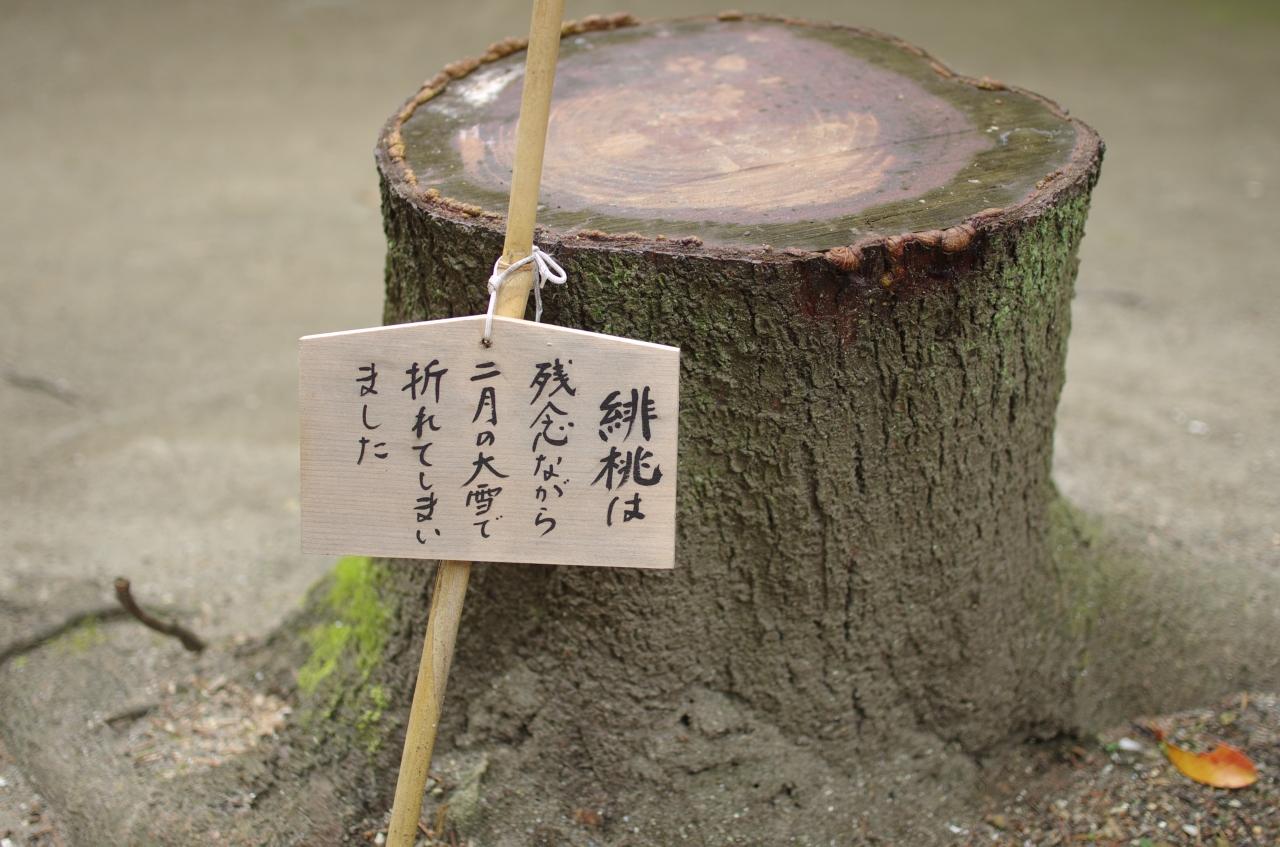 緋桃は
残念ながら
二月の大雪で
折れてしまい
ました